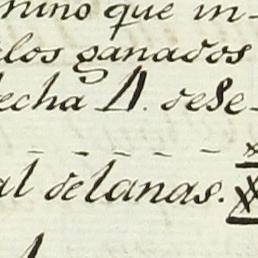 mino que in-
los ganados
fecha A. de Se-
al de lanas.